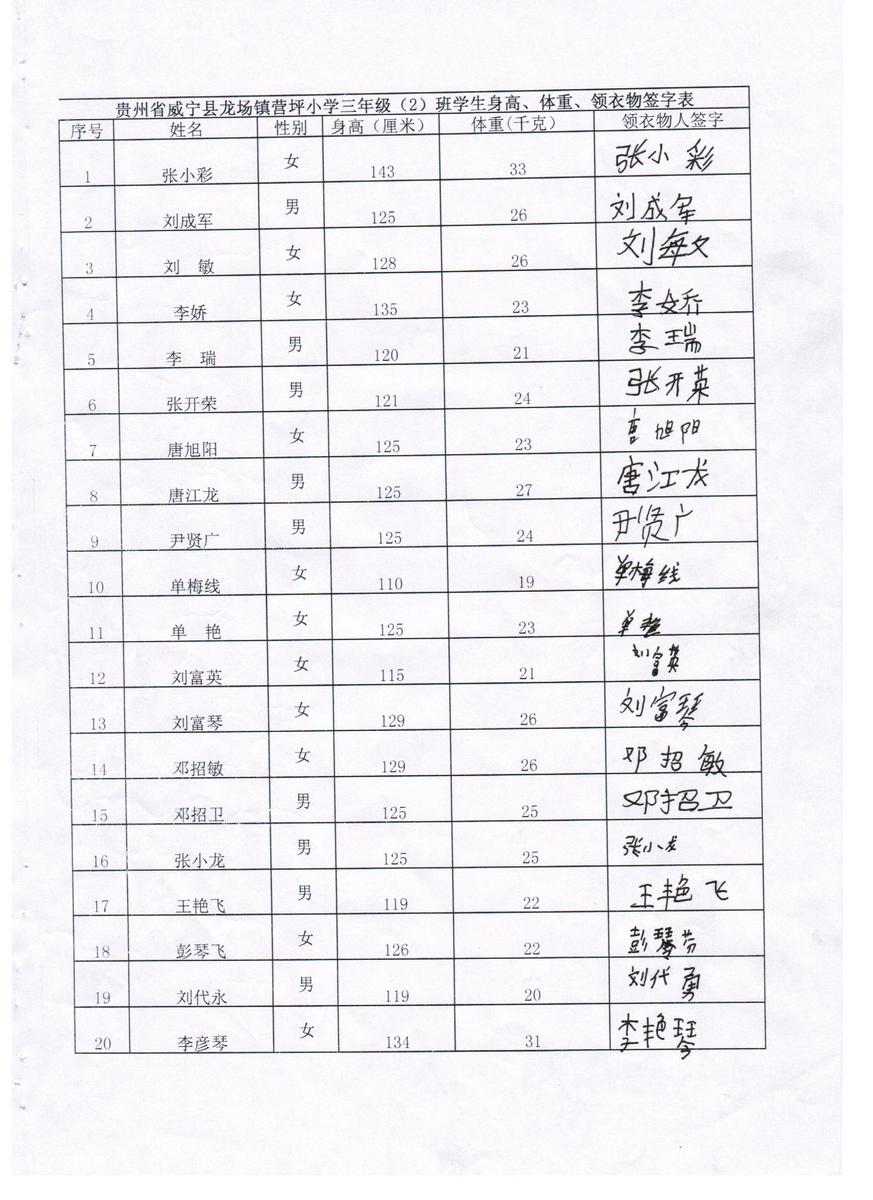 贵州省威宁县龙场镇营坪小学三年级（2）班学生身高、体重、领衣物签字表
序号 姓名 性别 身高（厘米） 体重(千克) 领衣物人签字
1 张小彩 女 143 33 张小彩
2 刘成军 男 125 26 刘成军
3 刘 敏 女 128 26 刘敏
4 李娇 女 135 23 李娇
5 李 瑞 男 120 21 李瑞
6 张开荣 男 121 24 张开英
7 唐旭阳 女 125 23 旭阳
8 唐江龙 男 125 27 唐江龙
9 尹贤广 男 125 24 尹贤广
10 单梅线 女 110 19 单梅线
11 单 艳 女 125 23 单艳
12 刘富英 女 115 21 刘富英
13 刘富琴 女 129 26 刘富琴
14 邓招敏 女 129 26 邓招敏
15 邓招卫 男 125 25 邓招卫
16 张小龙 男 125 25 张小龙
17 王艳飞 男 119 22 王艳飞
18 彭琴飞 女 126 22 彭琴芬
19 刘代永 男 119 20 刘代勇
20 李彦琴 女 134 31 李艳琴